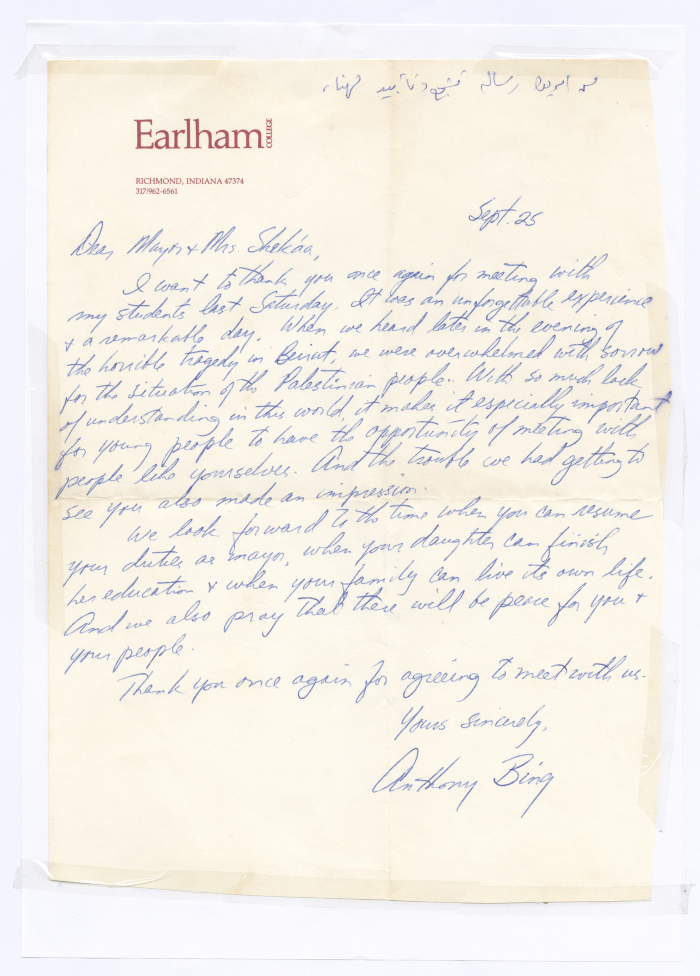 من امريكا رسالة تشجيع وتأييد
Earlham
COLLEGE
RICHMOND, INDIANA 47374
317/962-6561
Sept. 25
Dear Mayor & Mrs. Shek'aa,
I want to thank you once again for meeting with
my students last Saturday. It was an unforgettable experience
& a remarkable day. When we heard later in the evening of
the horrible tragedy in Beirut, we were overwhelmed with sorrow
for the situation of the Palestinian people. With so much lack
of understanding in this world, it makes it especially important
for young people to have the opportunity of meeting with
people like yourselves. And the trouble we had getting to
see you also made an impression.
We look forward to the time when you can resume
your duties as mayor, when your daughter can finish
her education & when your family can live its own life.
And we also pray that there will be peace for you &
your people.
Thank you once again for agreeing to meet with us.
Yours sincerely,
Anthony Bing